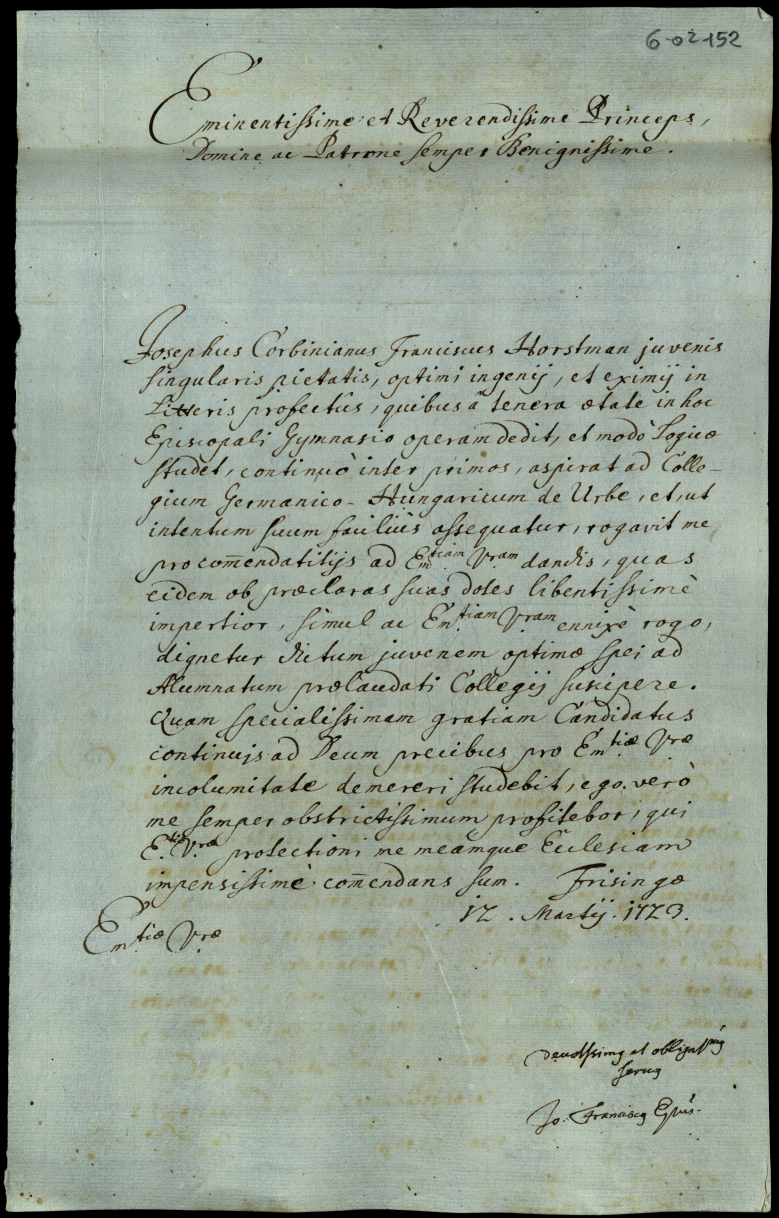 6-02-152
Eminentissime et Reverendissime Princeps,
Domine ac Patrone semper Benignissime.
Josephus Corbinianus Franciscus Horstman juvenis
singularis pietatis, optimi ingenij, et eximij in
Litteris profectûs, quibus à tenera ætate in hoc
Episcopali Gymnasio operam dedit, et modò Logicæ
studet, continuò inter primos, aspirat ad Colle-
gium Germanico-Hungaricum de Urbe, et, ut
intentum suum faciliùs assequatur, rogavit me
pro com̄endatitijs ad Em.tiam V.ram dandis, quas
eidem ob præclaras suas dotes libentissimè
impertior, simul ac Em.tiam V.ram ennixè rogo,
dignetur dictum juvenem optimæ spei ad
Alumnatum prælaudati Collegij suscipere.
Quam specialissimam gratiam Candidatus
continuis ad Deum precibus pro Em.tiæ Vræ
incolumitate demereri studebit, ego verò
me semper obstrictissimum profitebor, qui
E.tiæ V.ræ protectioni me meamque Ecclesiam
impensissimè com̄endans sum. Frisingæ
12. Martij. 1723.
Em.tiæ V.ræ
devotissimus et obligatmus
servus
Jo. Franciscus Epus.